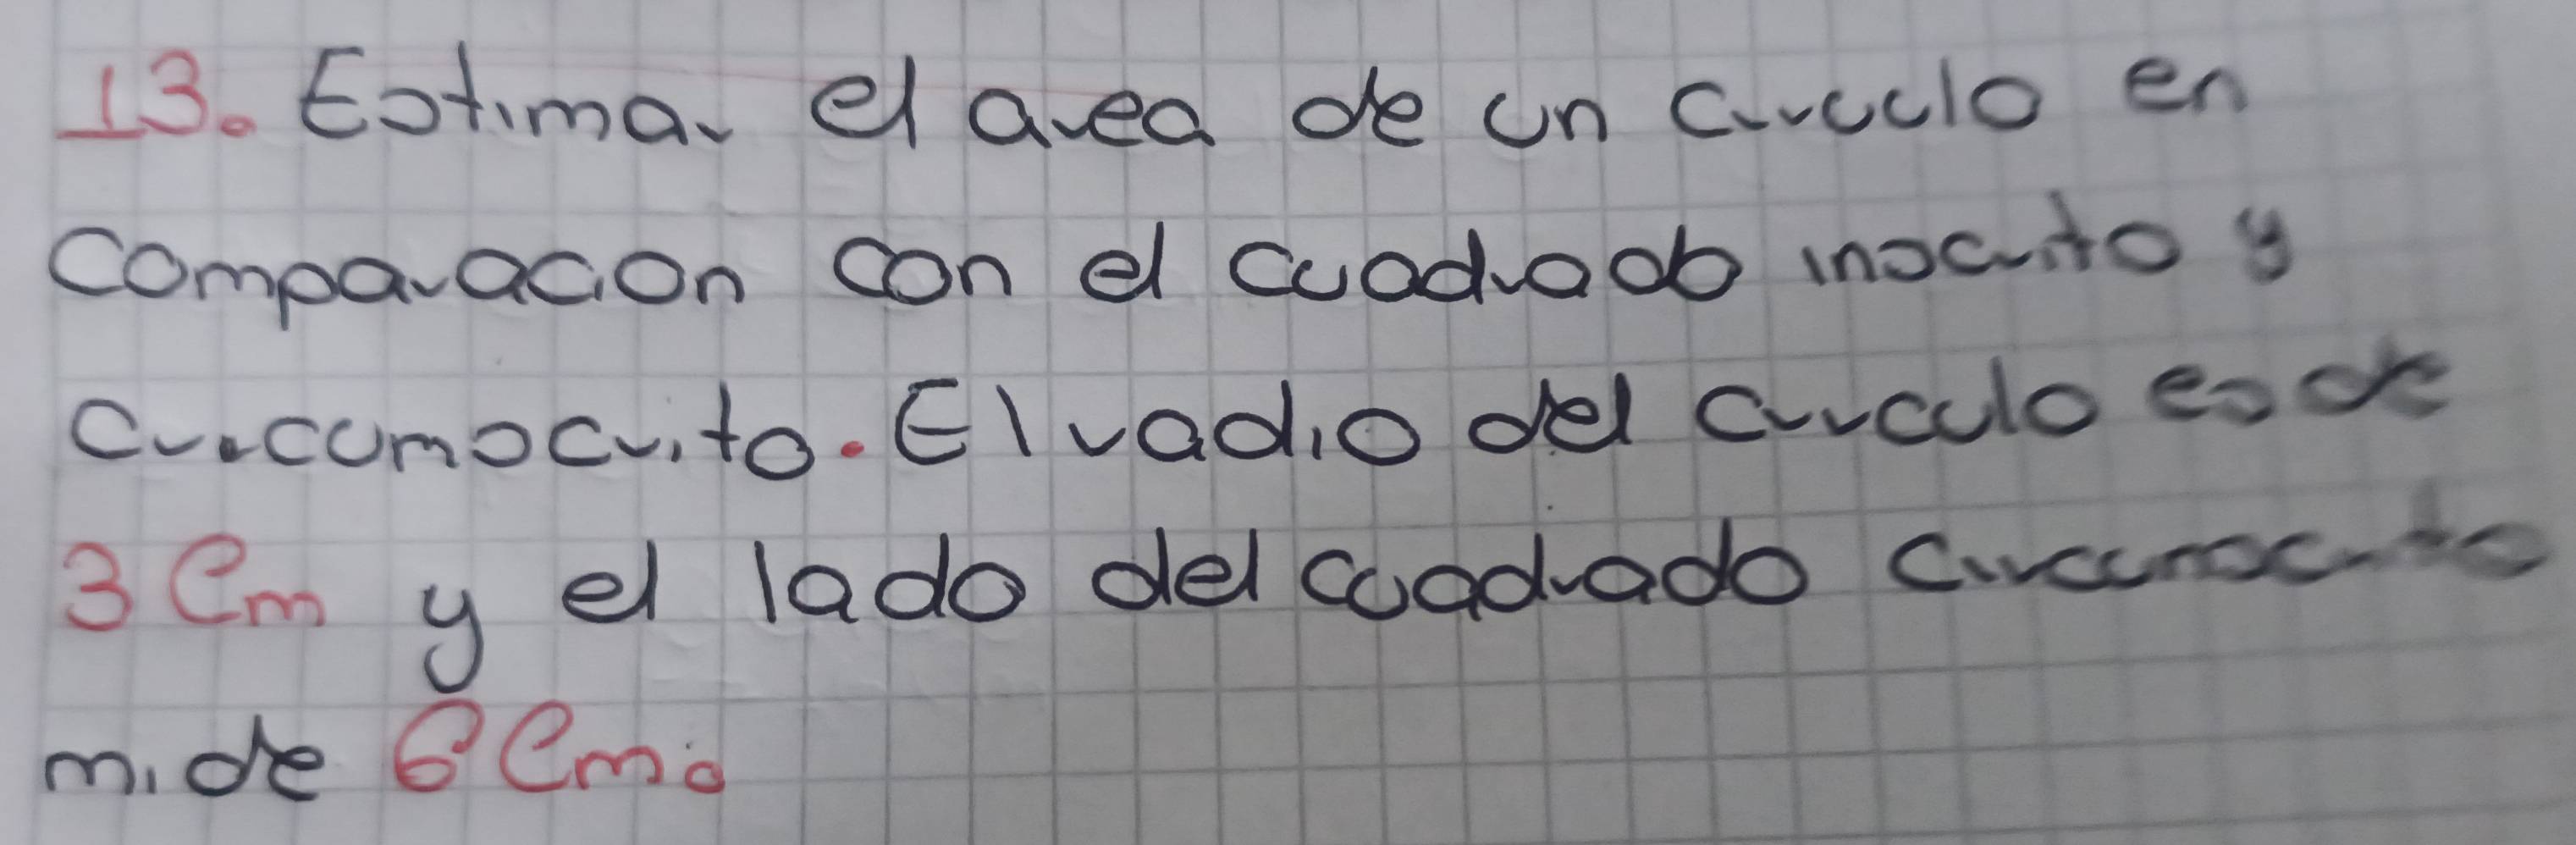 13. Estimar el area de un circulo en
comparacion con el cuadrado inscrito y
circumscrito. El radio del circulo es de
3 Cm y el lado del cuadrado circumscrito
mide 6 Cm.